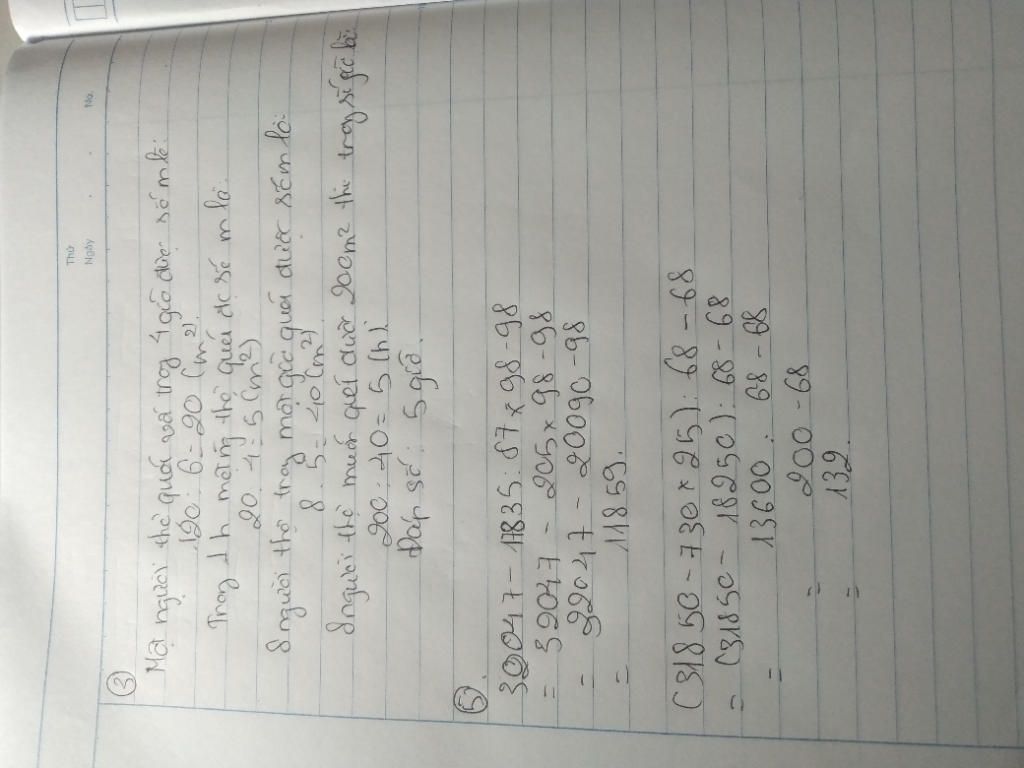 Thứ
Ngày No.
③
Một người thợ quét vôi trong 4 giờ được số m là:
120 : 6 = 20 (m²)
Trong 1h một ng thợ quét đc số m là:
20 : 4 = 5 (m²)
8 người thợ trong một giờ quét được số m là:
8 . 5 = 40 (m²)
8 người thợ muốn quét được 200m² thì trong số giờ là:
200 : 40 = 5 (h)
Đáp số: 5 giờ.
⑤
32047 - 17835 : 87 x 98 - 98
= 32047 - 205 x 98 - 98
= 32047 - 20090 - 98
= 11859.
(31850 - 730 x 25) : 68 - 68
= (31850 - 18250) : 68 - 68
= 13600 : 68 - 68
= 200 - 68
= 132.